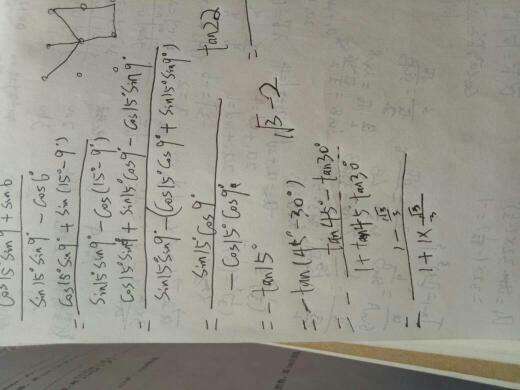 cos15°sin9°+sin6°
sin15°sin9°-cos6°
= cos15°sin9°+sin(15°-9°)
sin15°sin9°-cos(15°-9°)
= cos15°sin9°+sin15°cos9°-cos15°sin9°
sin15°sin9°-(cos15°cos9°+sin15°sin9°)
= sin15°cos9°
-cos15°cos9°
= -tan15°
= -tan(45°-30°)
= - tan45°-tan30°
1+tan45°tan30°
= - 1-√3/3
1+1×√3/3
√3-2
tan22
=